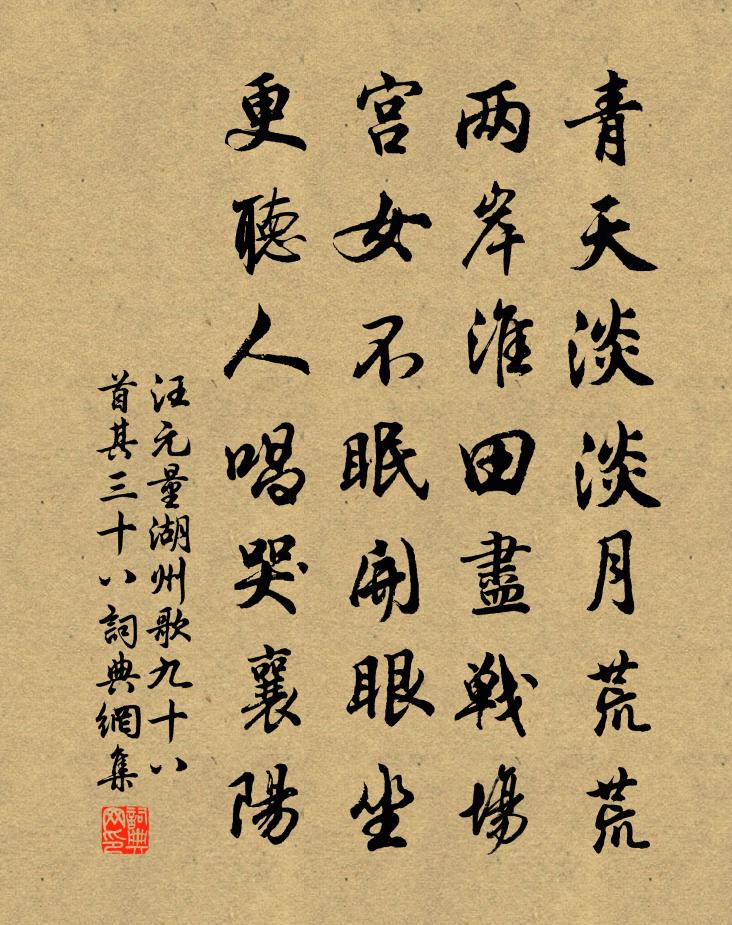 青天淡淡月荒荒
两岸淮田盡戰場
宫女不眠開眼坐
更聽人唱哭襄陽
汪元量湖州歌九十八
首其三十八詞典網集
詞典网印